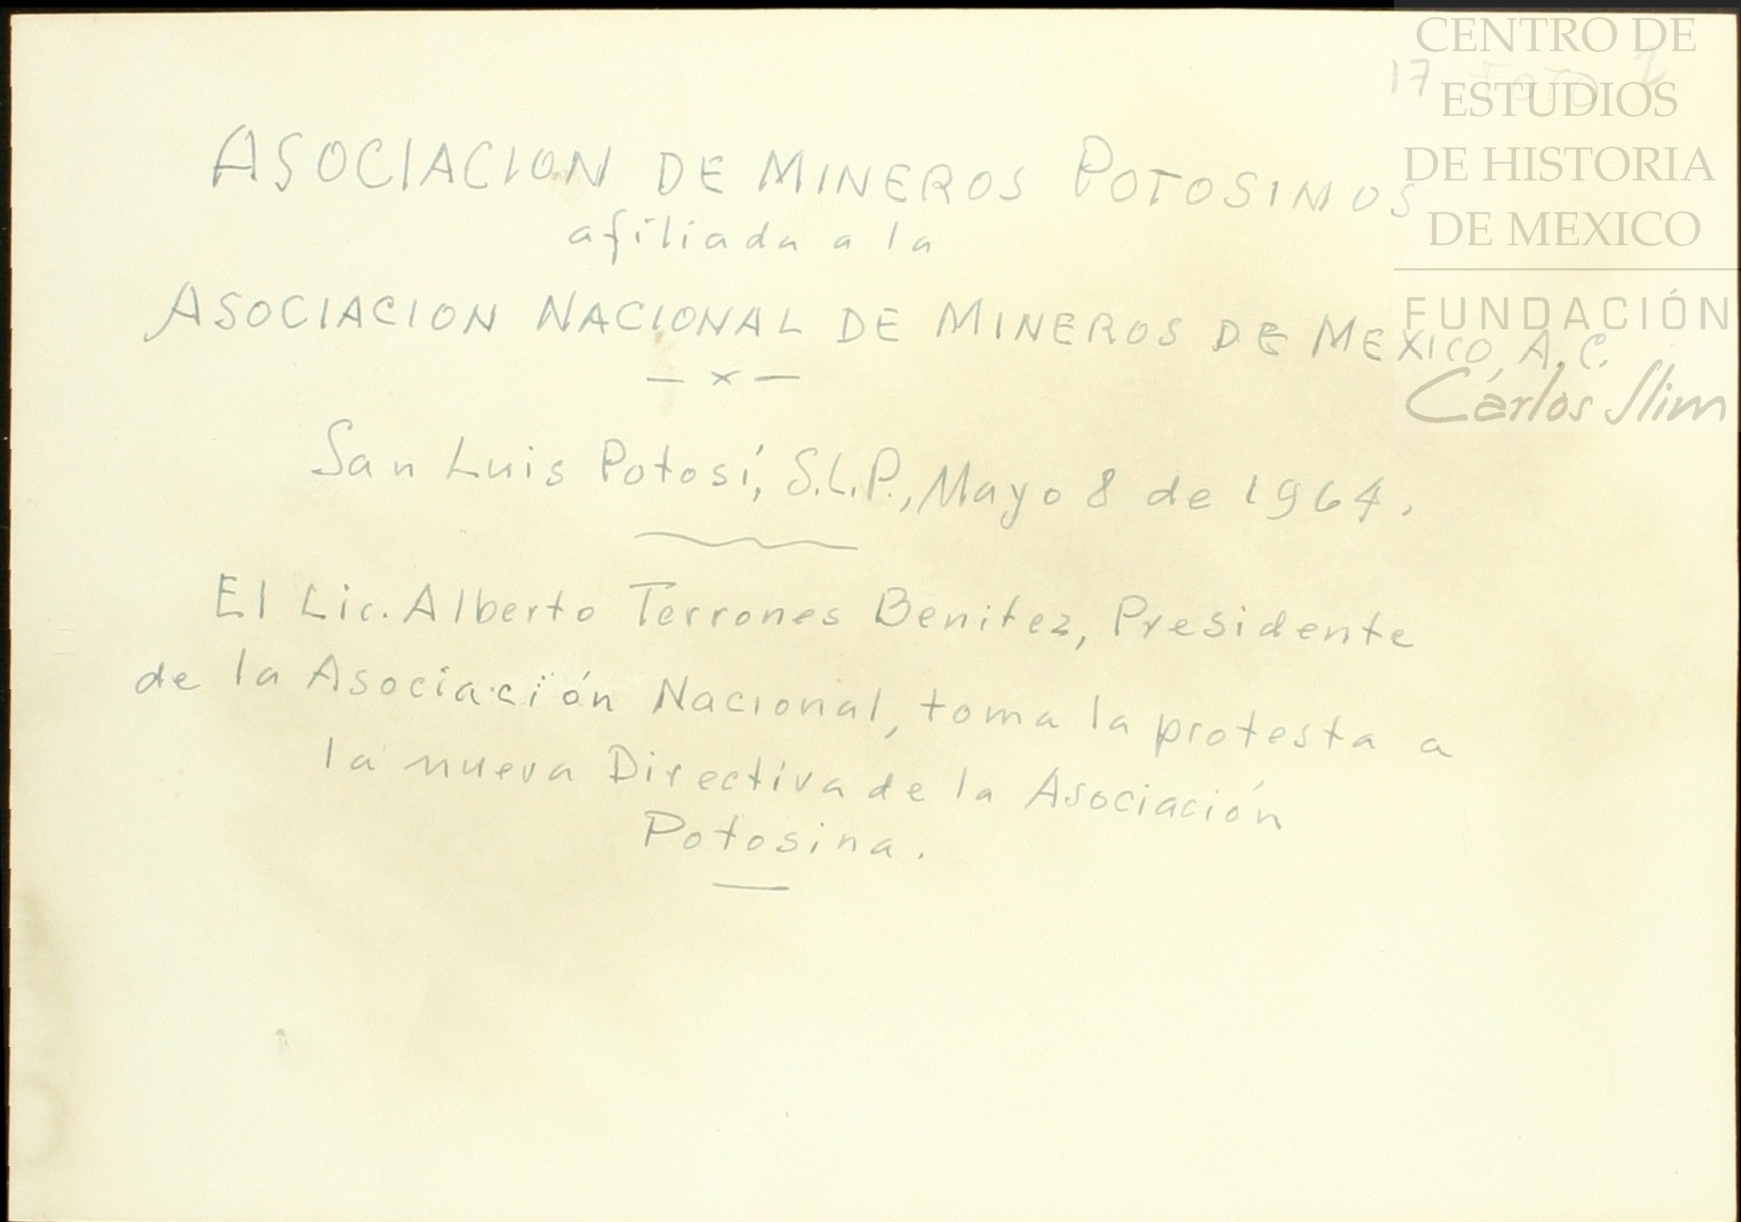 CENTRO DE
ESTUDIOS
DE HISTORIA
DE MEXICO
FUNDACIÓN
Carlos Slim
17
ASOCIACION DE MINEROS POTOSINOS
afiliada a la
ASOCIACION NACIONAL DE MINEROS DE MEXICO, A.C.
— x —
San Luis Potosí, S.L.P., Mayo 8 de 1964.
El Lic. Alberto Terrones Benitez, Presidente
de la Asociación Nacional, toma la protesta a
la nueva Directiva de la Asociación
Potosina.